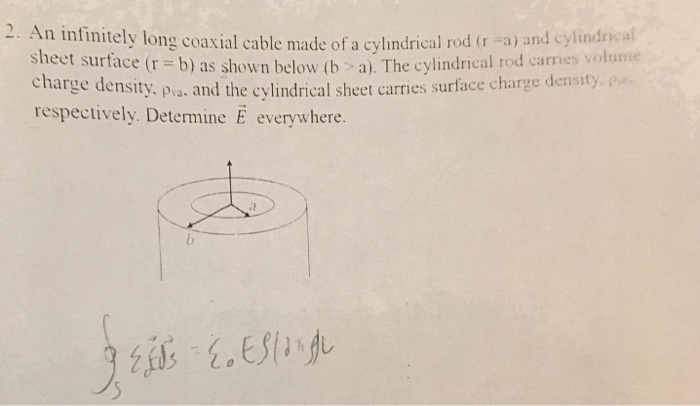 2. An infinitely long coaxial cable made of a cylindrical rod (r =a) and cylindrical
sheet surface (r = b) as shown below (b > a). The cylindrical rod carries volume
charge density, ρva, and the cylindrical sheet carries surface charge density,
respectively. Determine E⃗ everywhere.
a
b
∮s